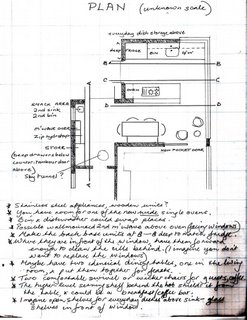 PLAN (unknown scale)
everyday dish storage above
DEEP FRIDGE
BIN
D/W
B
B
C
C
D
D
A
A
SNACK AREA
2nd sink
2nd bin
M'wave over
zip hydrotap
STORE
(deep drawers below
above)
Sky Tunnel?
NEW POCKET DOOR
* Stainless steel appliances, wooden units?
* You have room for one of the new wide single ovens.
* Bin & dishwasher could swap places.
* Possible wall mounted and m'wave above oven
* Make the back base units at B-B deep to match fridge
* Where they are in front of the window have them forward
enough to clean the tile behind. (I imagine you don't
want to replace the windows)
* Maybe have two identical dining tables, one in the living
room, & put them together for feasts.
* Two comfortable armchairs or wicker chairs for guests, coffee
* The higher level serving shelf behind the hob shields it from
the table & could be a "breakfast/coffee bar"
* Imagine open shelves for everyday dishes above sink - glass
shelves in front of window.